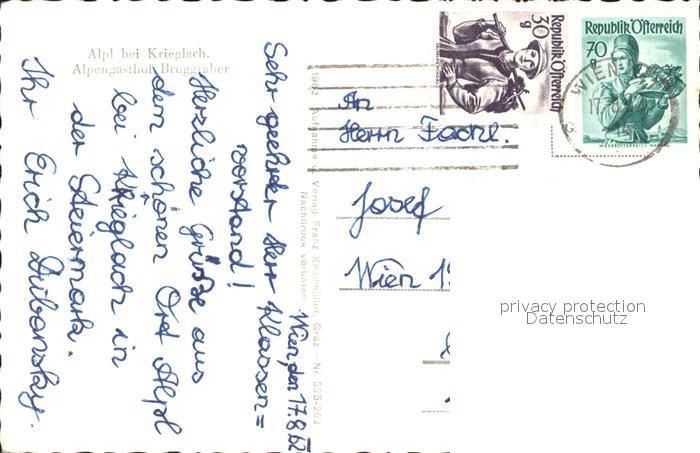 Alpl bei Krieglach.
Alpengasthof Bruggraber
Wien, den 17.8.62
Sehr geehrter Herr Klassen=
vorstand!
Herzliche Grüße aus
dem schönen Ort Alpl
bei Krieglach in
der Steiermark.
Ihr Erich Dubansky.
1962 Aufnahme u. Verlag Franz Knollmüller, Graz. - Nr. 595-262
Nachdruck verboten
30 g
Republik Österreich
Republik Österreich
70 g
NIEDERÖSTERREICH WACHAU
WIEN
17
An
Herrn Fachl.
Josef
Wien 1
privacy protection
Datenschutz